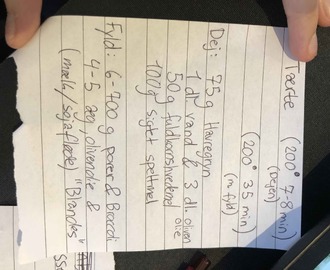 Tærte (200° 7-8 min)
(Dejen)
(200° 35 min)
(m. fyld)
Dej: 75g Havregryn
1 dl vand & 3 dl. oliven
olie
50g fuldkornshvedemel
100g sigtet speltmel
Fyld: 6-700 g porer & Broccoli
4-5 æg, olivenolie &
(mælk/sojafløde) "Blandes"